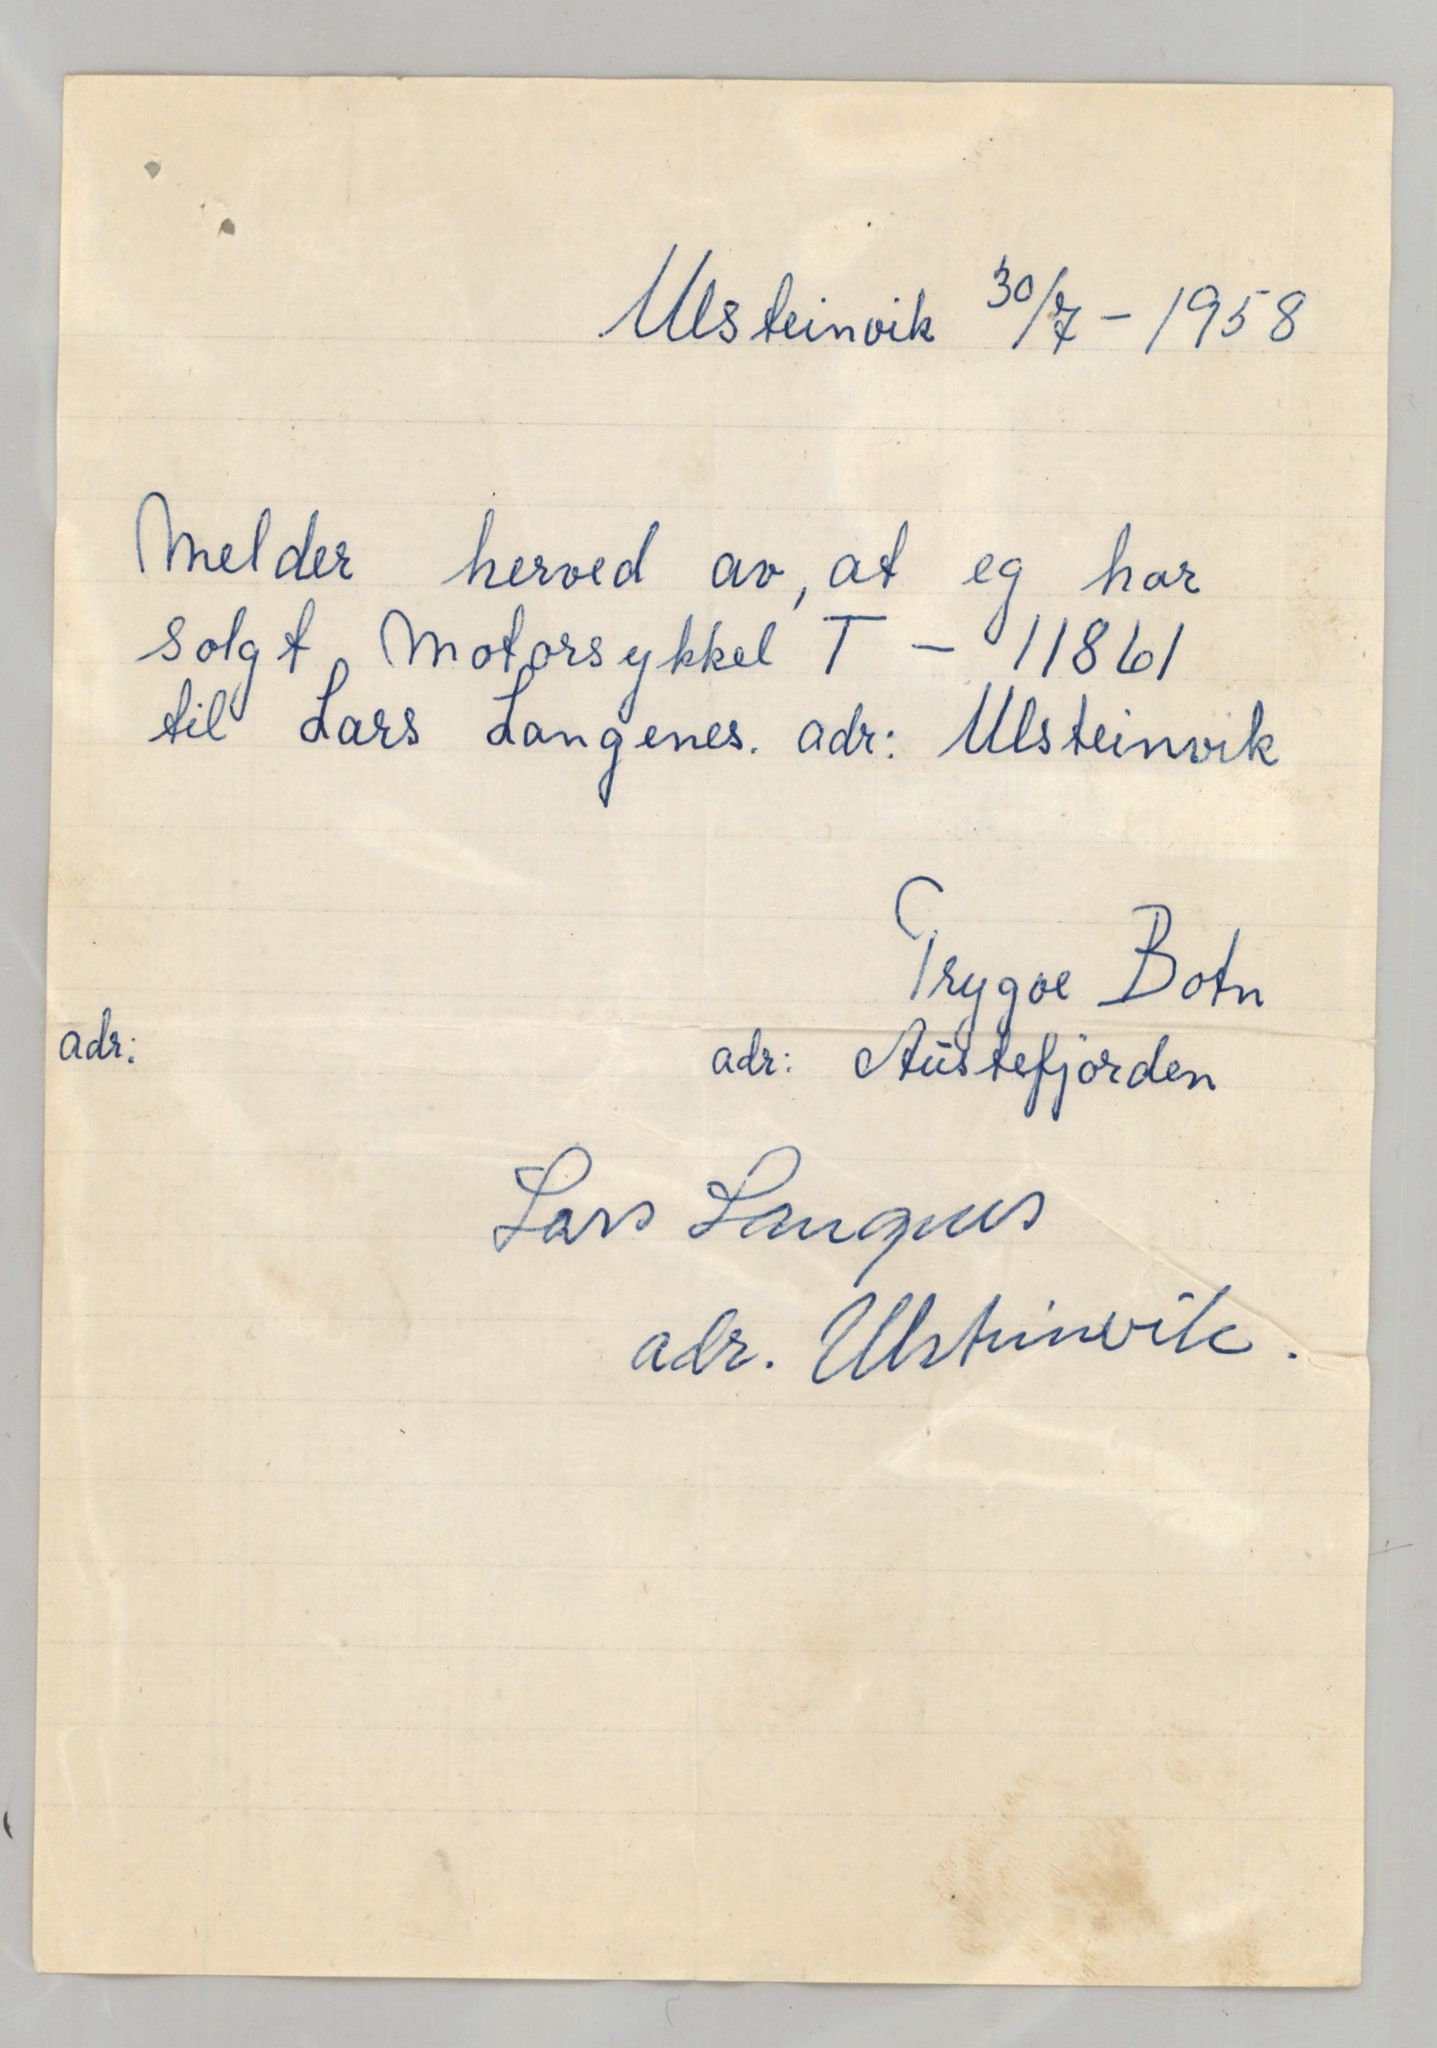 Ulsteinvik 30/7 - 1958
Melder herved av, at eg har
solgt Motorsykkel T - 11861
til Lars Langenes. adr: Ulsteinvik
Trygve Botn
adr:
adr: Austefjorden
Lars Langnes
adr. Ulsteinvik.